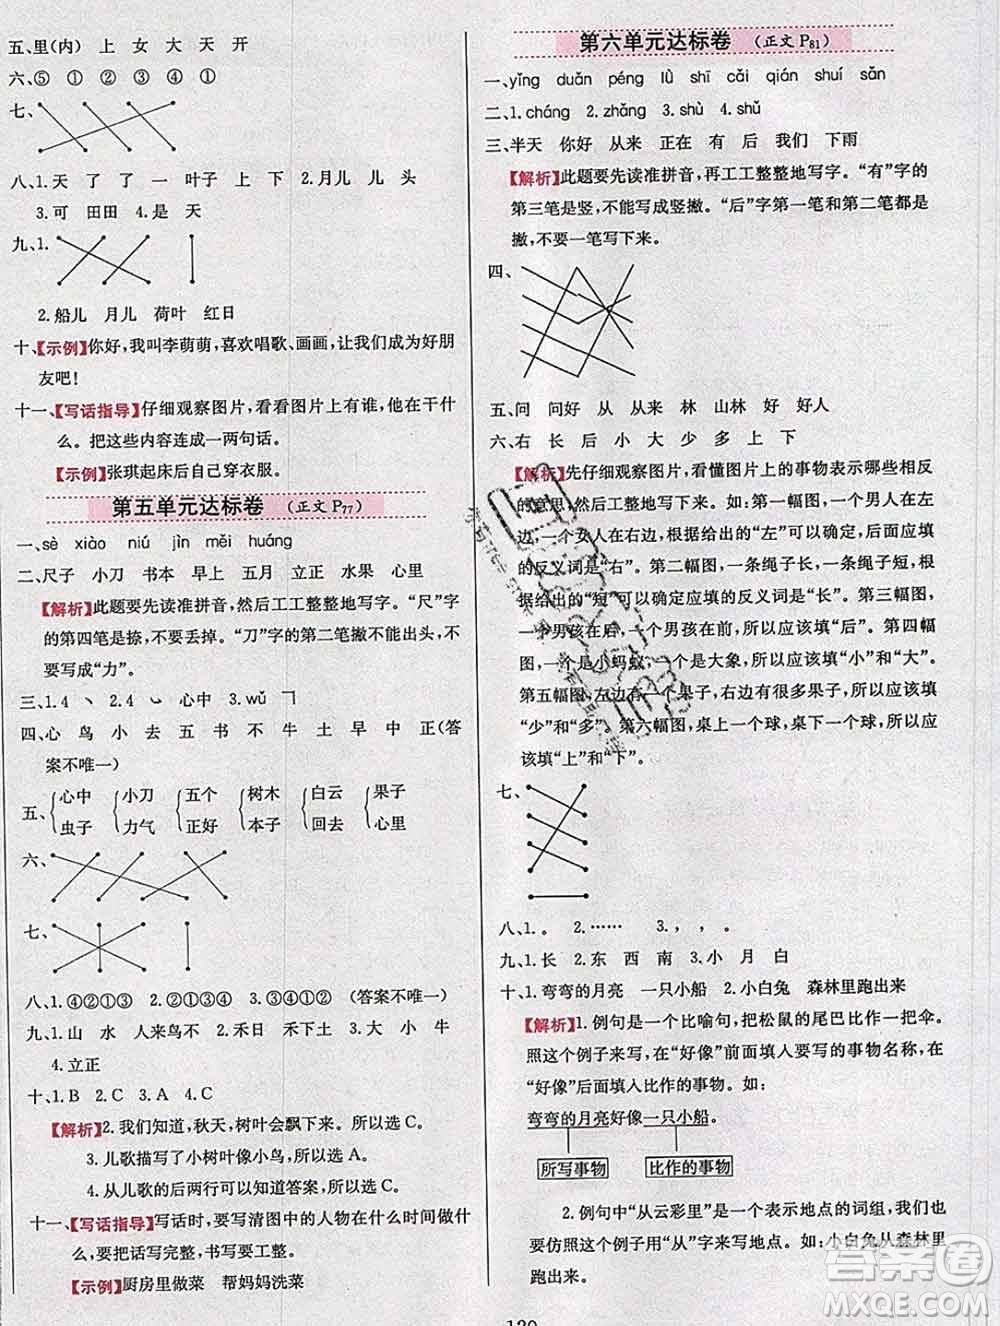 五、里(内) 上 女 大 天 开
六、⑤ ① ② ④ ①
七、
八、1.天 了 了 一 叶子 上 下 2.月儿 儿 头
3.可 田田 4.是 天
九、1.
2.船儿 月儿 荷叶 红日
十、【示例】你好,我叫李萌萌,喜欢唱歌、画画,让我们成为好朋
友吧!
十一、【写话指导】仔细观察图片,看看图片上有谁,他在干什
么。把这些内容连成一两句话。
【示例】张琪起床后自己穿衣服。
第五单元达标卷 (正文 P77)
一、sè xiào niú jìn měi huáng
二、尺子 小刀 书本 早上 五月 立正 水果 心里
【解析】此题要先读准拼音,然后工工整整地写字。“尺”字
的第四笔是捺,不要丢掉。“刀”字的第二笔撇不能出头,不
要写成“力”。
三、1.4 丶 2.4 ㇃ 心中 3.wǔ ㇕
四、心 鸟 小 去 五 书 不 牛 土 早 中 正(答
案不唯一)
五、{心中 虫子 {小刀 力气 {五个 正好 {树木 本子 {白云 回去 {果子 心里
六、
七、
八、1.④②①③ 2.①④③② 3.②④①③ (答案不唯一)
九、1.山 水 人来鸟不 2.禾日 禾下土 3.大 小 牛
4.立正
十、1.B 2.C 3.A 4.C
【解析】2.我们知道,秋天,树叶会飘下来。所以选 C。
3.儿歌描写了小树叶像小鸟,所以选 A。
4.从儿歌的后两行可以知道答案,所以选 C。
十一、【写话指导】写话时,要写清图中的人物在什么时间做什
么,要把话写完整,书写要工整。
【示例】厨房里做菜 帮妈妈洗菜
第六单元达标卷 (正文 P81)
一、yǐng duǎn péng lǜ shī cǎi qián shuí sǎn
二、1.cháng 2.zhǎng 3.shù 4.shǔ
三、半天 你好 从来 正在 有 后 我们 下雨
【解析】此题要先读准拼音,再工工整整地写字。“有”字的
第三笔是竖,不能写成竖撇。“后”字第一笔和第二笔都是
撇,不要一笔写下来。
四、
五、问 问好 从 从来 林 山林 好 好人
六、右 长 后 小 大 少 多 上 下
【解析】先仔细观察图片,看懂图片上的事物表示哪些相反
的意思,然后工整地写下来。如:第一幅图,一个男人在左
边,一个女人在右边,所以根据给出的“左”可以确定应填
的反义词是“右”。第二幅图,一条绳子长,一条绳子短,根
据给出的“短”可以确定应填的反义词是“长”。第三幅图,
一个男孩在前,一个男孩在后,所以应该填“后”。第四幅
图,一个是小蚂蚁,一个是大象,所以应该填“小”和“大”。
第五幅图,左边有一个果子,右边有很多果子,所以应该填
“少”和“多”。第六幅图,桌上一个球,桌下一个球,所以应
该填“上”和“下”。
七、
八、1.。 2.…… 3.,。
九、1.长 2.东 西 南 3.小 月 白
十、1.弯弯的月亮 一只小船 2.小白兔 森林里跑出来
【解析】1.例句是一个比喻句,把松鼠的尾巴比作一把伞。
照这个例子来写,在“好像”前面填入要写的事物名称,在
“好像”后面填入比作的事物。如:
弯弯的月亮好像一只小船。
所写事物 比作的事物
2.例句中“从云彩里”是一个表示地点的词组,我们也
要仿照这个例子用“从”字来写地点。如:小白兔从森林里
跑出来。
120
答案圈
MXQE.COM